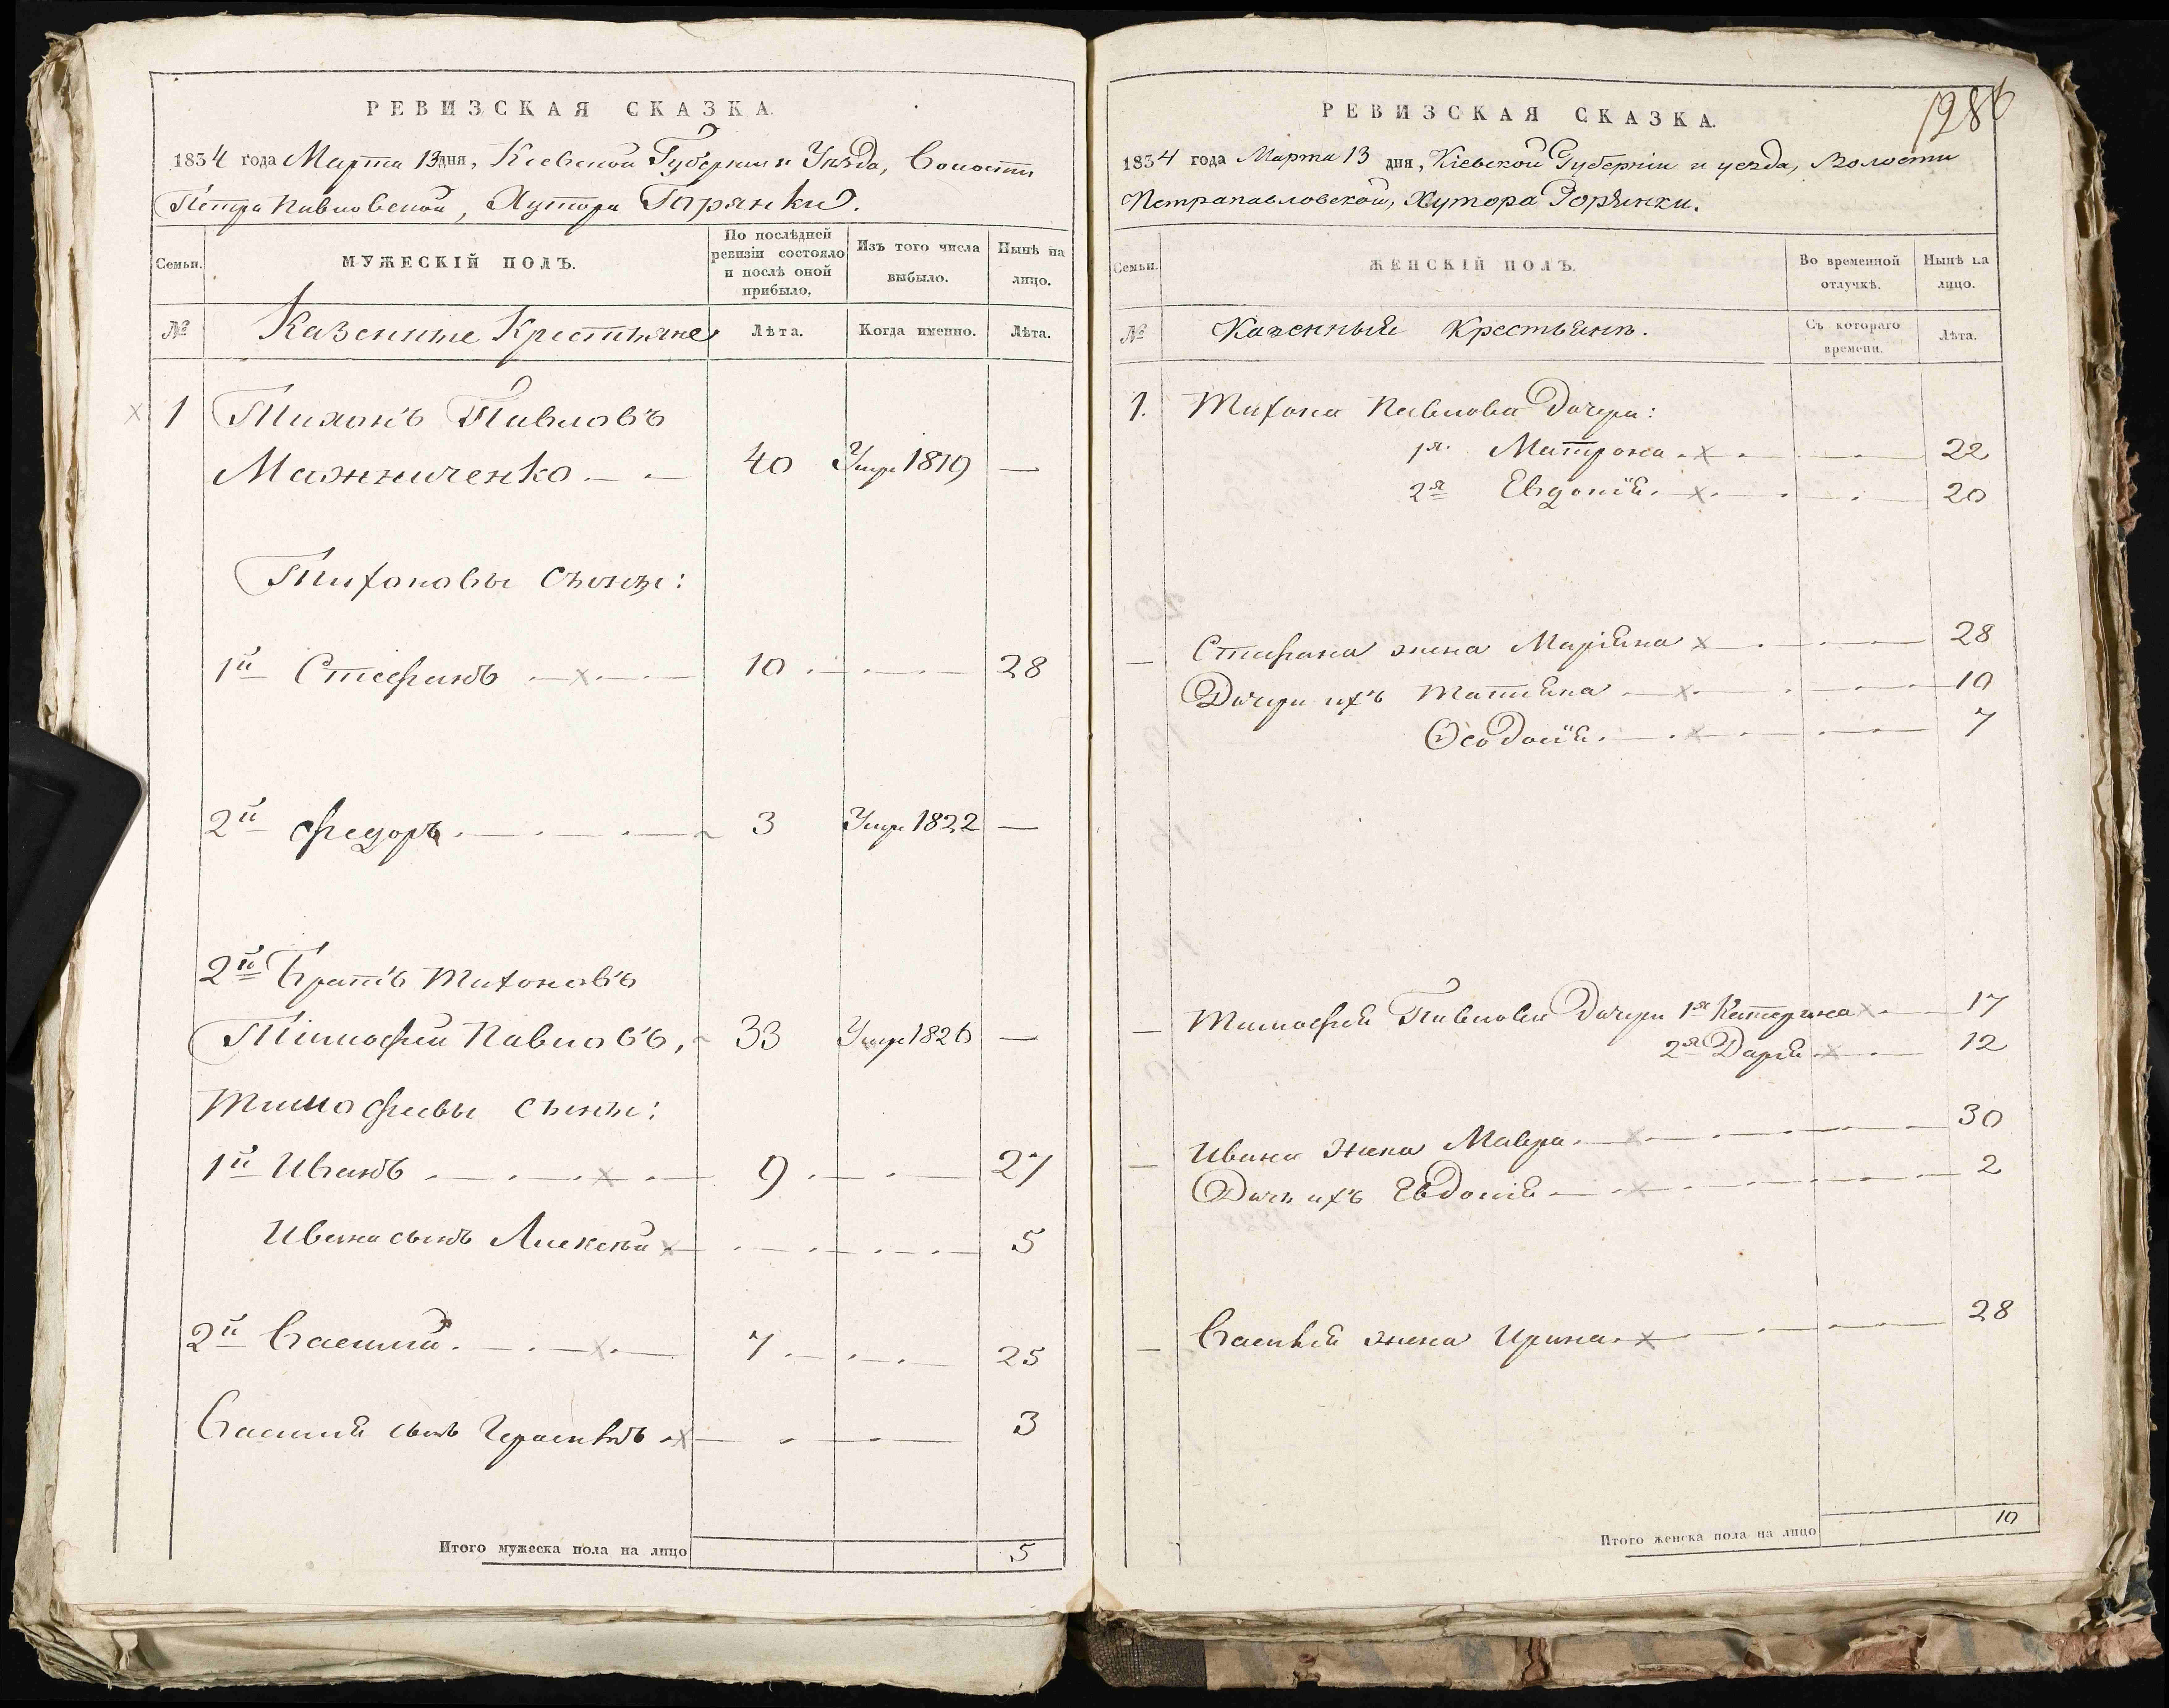 РЕВИЗСКАЯ СКАЗКА.
1834 года Марта 13 дня, Киевской Губернии и Уѣзда, Волости
Петропавловской, Хутора Горянки.
Семьи.
МУЖЕСКІЙ ПОЛЪ.
По послѣдней ревизіи состояло и послѣ оной прибыло.
Изъ того числа выбыло.
Нынѣ на лицо.
№
Казенные Крестьяне
Лѣта.
Когда именно.
Лѣта.
1 Тихонъ Павловъ
Манжиченко 40 Умре 1819 —
Тихоновы сыны:
1й Стефанъ 10 28
2й Федоръ 3 Умре 1822 —
2й Братъ Тихоновъ
Тимофей Павловъ, 33 Умре 1826 —
Тимофеевы сыны:
1й Иванъ 9 27
Ивана сынъ Алексей 5
2й Василий 7 25
Василия сынъ Герасимъ 3
Итого мужеска пола на лицо 5
1286
РЕВИЗСКАЯ СКАЗКА.
1834 года Марта 13 дня, Кіевской Губерніи и уезда, Волости
Петрапавловской, Хутора Горянки.
Семьи.
ЖЕНСКІЙ ПОЛЪ.
Во временной отлучкѣ.
Нынѣ на лицо.
№
Казенный Крестьянъ.
Съ котораго времени.
Лѣта.
1. Тихона Павлова Дочери:
1я Матрона 22
2я Евдокія 20
— Стефана жена Маріяна 28
Дочери ихъ Татияна 10
Феодосія 7
— Тимофея Павлова Дочери 1я Катерина 17
2я Дарія 12
— Ивана жена Мавра 30
Дочь ихъ Евдокія 2
— Василія жена Ирина 28
Итого женска пола на лицо 10